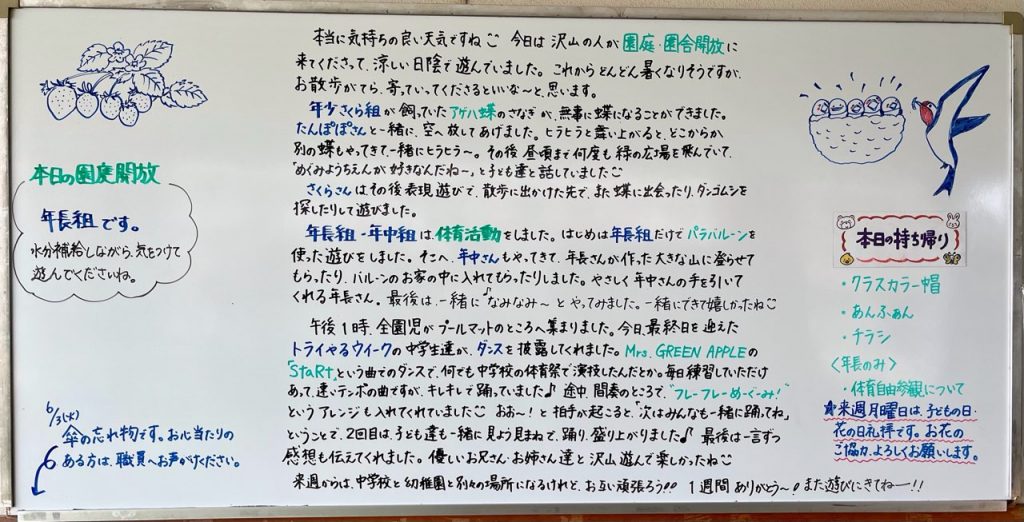 本当に気持ちの良い天気ですね 今日は沢山の人が園庭・園舎開放に
来てくださって、涼しい日陰で遊んでいました。これからどんどん暑くなりそうですが、
お散歩がてら、寄っていってくださるといいな〜と思います。
年少さくら組が飼っていたアゲハ蝶のさなぎが、無事に蝶になることができました。
たんぽぽさんと一緒に、空へ放してあげました。ヒラヒラと舞い上がると、どこからか
別の蝶もやってきて、一緒にヒラヒラ〜。その後、昼頃まで何度も緑の広場を飛んでいて、
「めぐみようちえんが好きなんだね〜」と子ども達と話していました
さくらさんはその後表現遊びで、散歩に出かけた先で、また蝶に出会ったり、ダンゴムシを
探したりして遊びました。
年長組・年中組は、体育活動をしました。はじめは年長組だけでパラバルーンを
使った遊びをしました。そこへ、年中さんもやってきて、年長さんが作った大きな山に登らせて
もらったり、バルーンのお家の中に入れてもらったりしました。やさしく年中さんの手を引いて
くれる年長さん。最後は、一緒に♪なみなみ〜とやってみました。一緒にできて嬉しかったね
午後1時、全園児がプールマットのところへ集まりました。今日、最終日を迎えた
トライやるウイークの中学生達が、ダンスを披露してくれました。Mrs. GREEN APPLEの
「StaRt」という曲でのダンスで、何でも中学校の体育祭で演技したんだとか。毎日練習していただけ
あって、速いテンポの曲ですが、キレキレで踊っていました♪ 途中、間奏のところで、"フレーフレーめーぐーみ!"
というアレンジも入れてくれていました おおー!と拍手が起こると、「次はみんなも一緒に踊ってね」
ということで、2回目は、子ども達も一緒に見よう見まねで、踊り、盛り上がりました♪ 最後は一言ずつ
感想も伝えてくれました。優しいお兄さん・お姉さん達と沢山遊んで楽しかったね
来週からは、中学校と幼稚園と別々の場所になるけれど、お互い頑張ろう!! 1週間ありがとう〜! また遊びにきてねー!!
本日の園庭開放
年長組です。
水分補給しながら、気をつけて
遊んでくださいね。
6/3(水)
傘の忘れ物です。お心当たりの
ある方は、職員へお声がけください。
本日の持ち帰り
・クラスカラー帽
・あんふぁん
・チラシ
〈年長のみ〉
・体育自由参観について
★来週月曜日は、子どもの日・
花の日礼拝です。お花の
ご協力、よろしくお願いします。